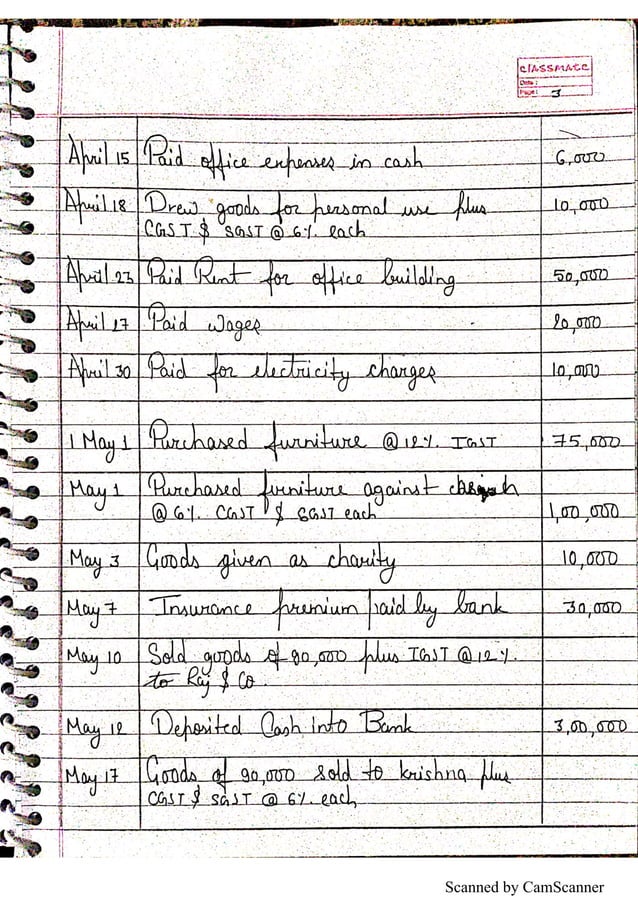 classmate
Date :
Page : 3
April 15 Paid office expenses in cash 6,000
April 18 Drew goods for personal use plus 10,000
CGST & SGST @ 6% each
April 23 Paid Rent for office building 50,000
April 27 Paid wages 20,000
April 30 Paid for electricity charges 10,000
1 May 1 Purchased furniture @ 12% IGST 75,000
May 1 Purchased furniture against
@ 6% CGST & SGST each 1,00,000
May 3 Goods given as charity 10,000
May 7 Insurance premium paid by bank 30,000
May 10 Sold goods of 90,000 plus IGST @ 12%
to Raj & Co.
May 12 Deposited Cash into Bank 3,00,000
May 17 Goods of 90,000 sold to krishna plus
CGST & SGST @ 6% each
Scanned by CamScanner